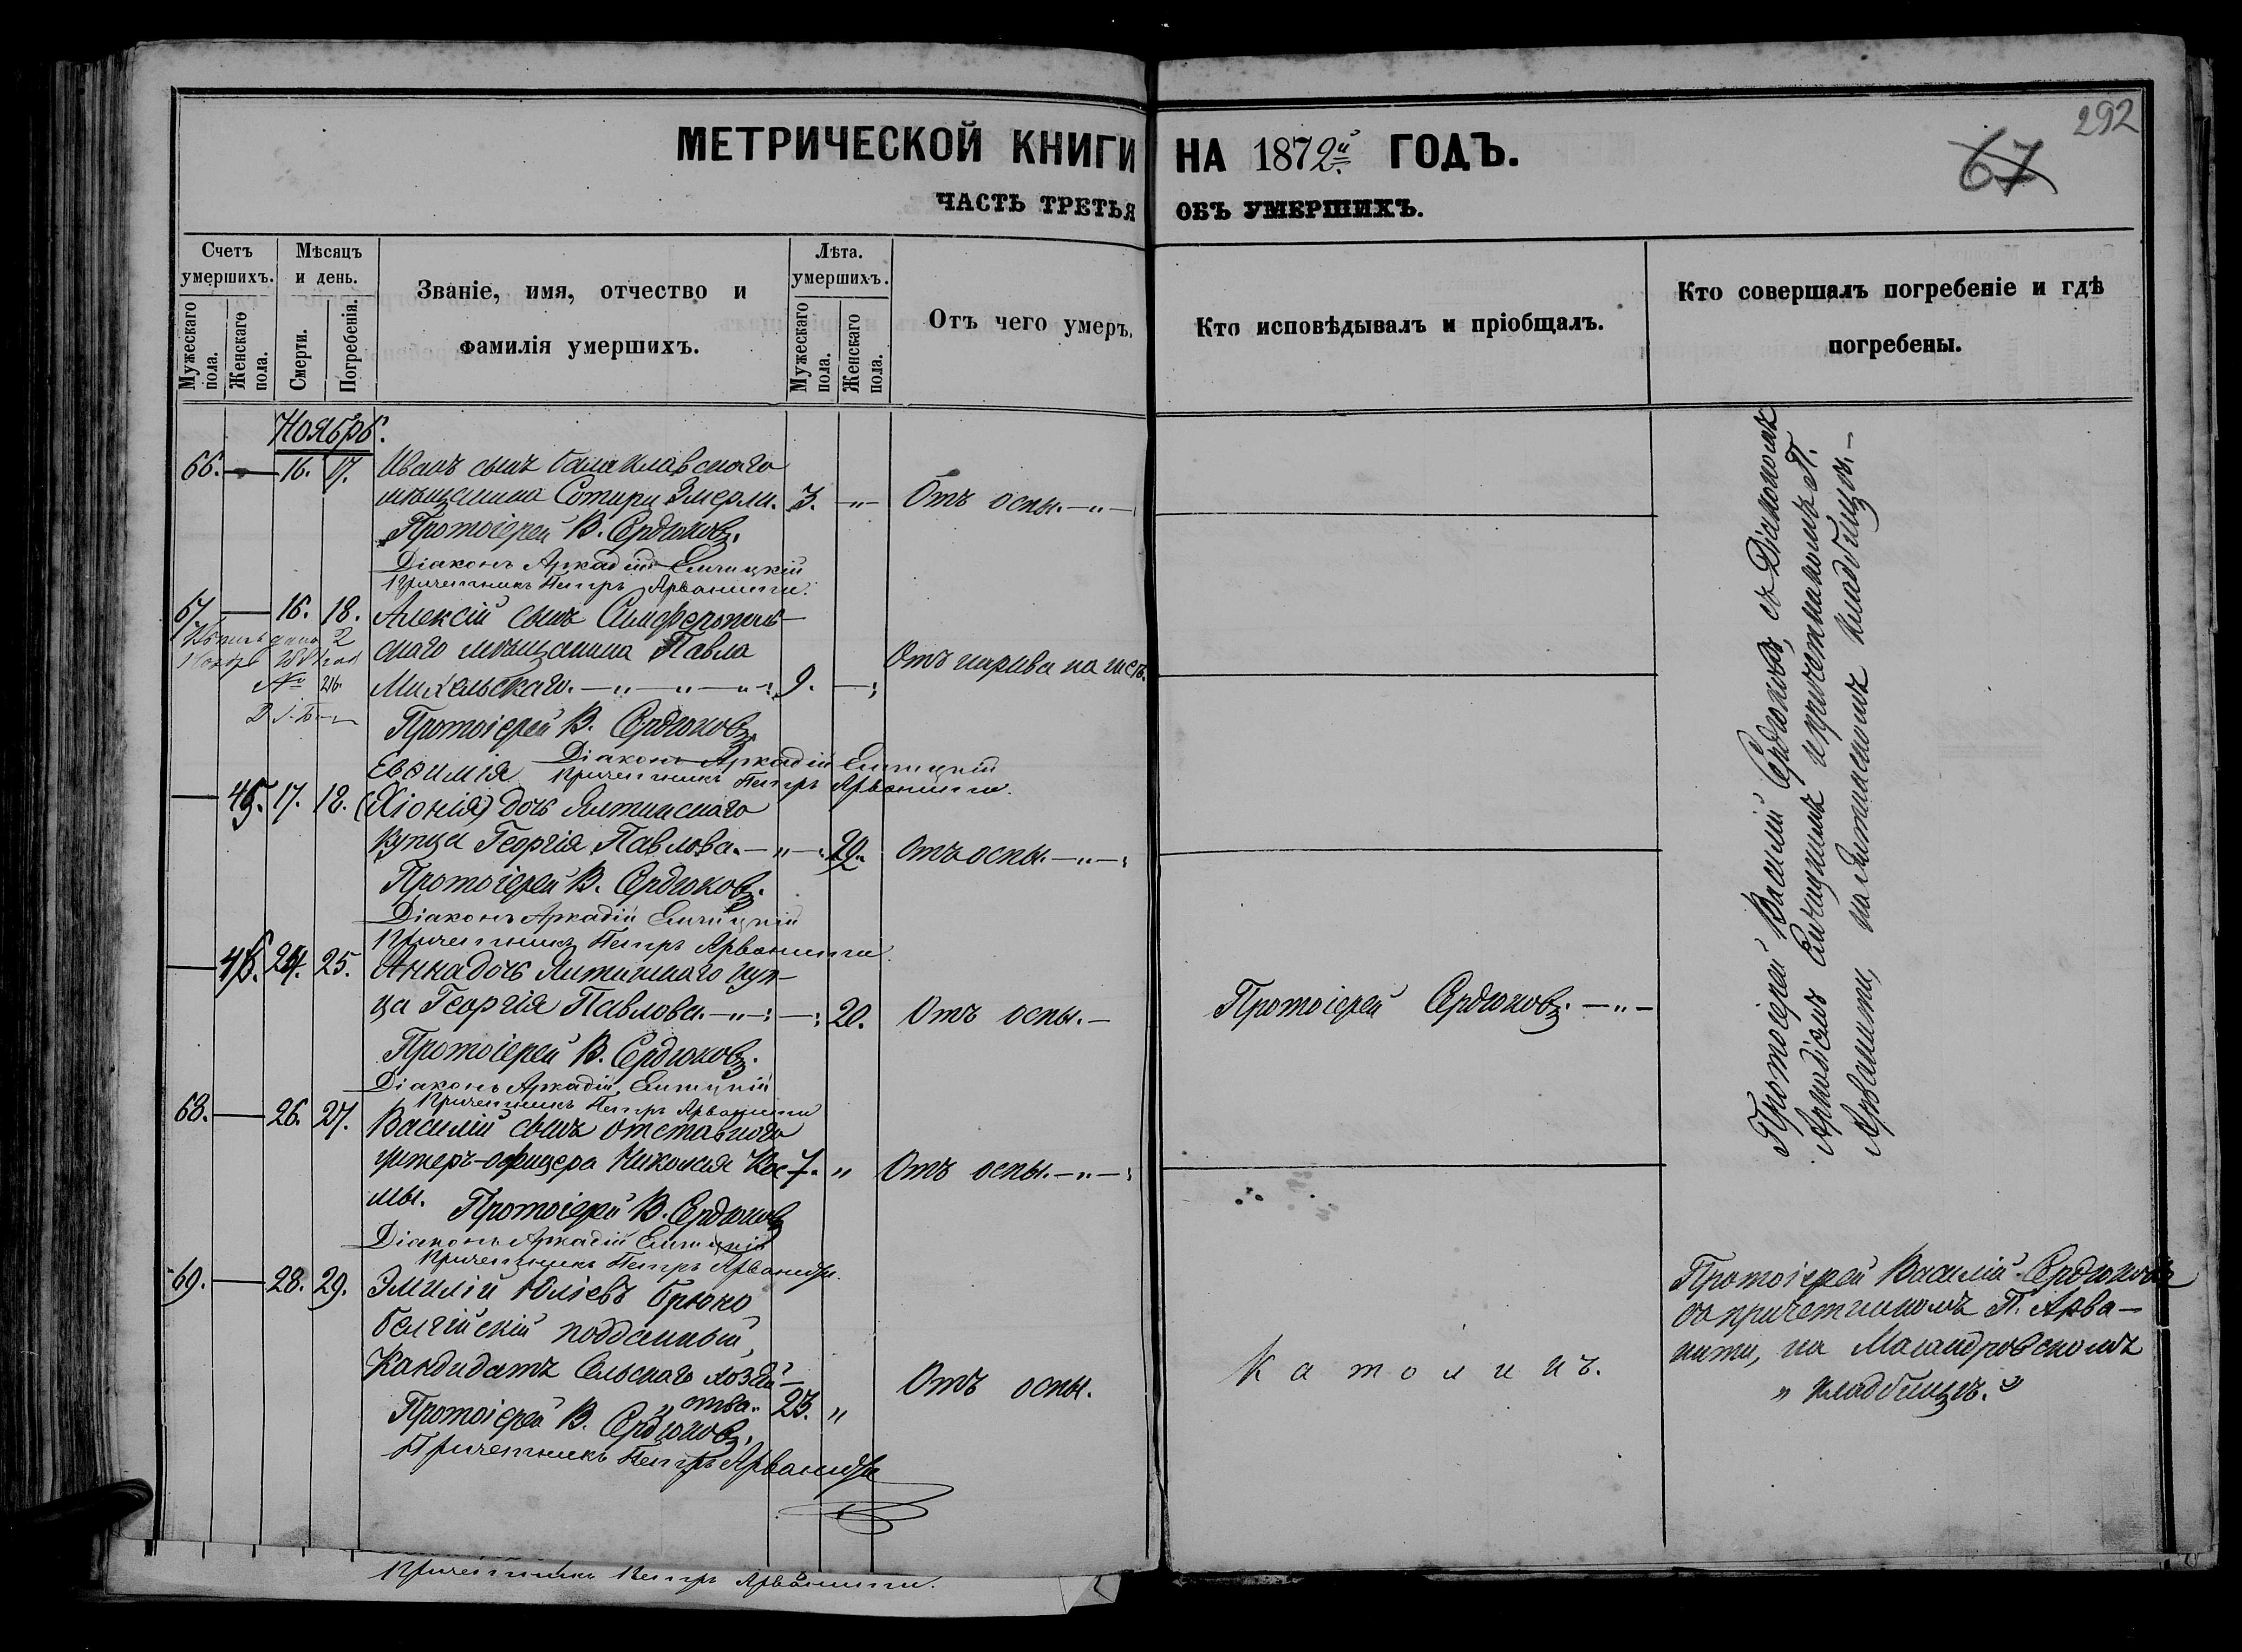 МЕТРИЧЕСКОЙ КНИГИ НА 1872й ГОДЪ.
292
67
ЧАСТЬ ТРЕТЬЯ ОБЪ УМЕРШИХЪ.
Счетъ умершихъ.
Мужескаго пола.
Женскаго пола.
Мѣсяцъ и день.
Смерти.
Погребенія.
Званіе, имя, отчество и
фамилія умершихъ.
Лѣта. умершихъ.
Мужескаго пола.
Женскаго пола.
Отъ чего умеръ.
Кто исповѣдывалъ и пріобщалъ.
Кто совершалъ погребеніе и гдѣ
погребены.
Ноябрь.
66. — 16. 17. Иванъ сынъ балаклавскаго
мѣщанина Сотири Эмерли. 3. -"- Отъ оспы. -"-
Протоіерей В. Сердюковъ.
Діаконъ Аркадій
Причетникъ Петръ Арванити.
67. — 16. 18. Алексій сынъ Симферополь-
скаго мѣщанина Павла
Михальскаго. -"-"-"-: 9. —; Отъ нарыва на
№ 216.
Протоіерей В. Сердюковъ.
Евѳимія Діаконъ Аркадій
Причетникъ Петръ Арванити.
— 45. 17. 18. (Хіонія) дочь Ялтинскаго
купца Георгія Павлова. -"-: Отъ оспы. -"-:
Протоіерей В. Сердюковъ.
Діаконъ Аркадій
Причетникъ Петръ Арванити.
— 46. 24. 25. Анна дочь Ялтинскаго куп-
ца Георгія Павлова. -"-: —: 20. Отъ оспы. — Протоіерей Сердюковъ. -"-
Протоіерей В. Сердюковъ.
Діаконъ Аркадій
Причетникъ Петръ Арванити
68. — 26. 27. Василій сынъ отставного
унтеръ-офицера Николая Кос 7. " Отъ оспы. -"-:
мы. Протоіерей В. Сердюковъ
Діаконъ Аркадій
Причетникъ Петръ Арваниди.
69. — 28. 29. Эмилій Юліевъ Брюно
белгійскій подданный,
Кандидатъ Сельскаго хозяй-
ства. 23. " Отъ оспы. Католикъ.
Протоіерей В. Сердюковъ.
Причетникъ Петръ Арваниди
Причетникъ Петръ Арванити.
Протоіерей Василій Сердюковъ, съ Діакономъ
Аркадіемъ и причетникомъ П.
Арванити, на Ялтинскомъ кладбищѣ.-
Протоіерей Василій Сердюковъ
съ причетникомъ П. Арва-
нити, на Масандровскомъ
" кладбищѣ. "